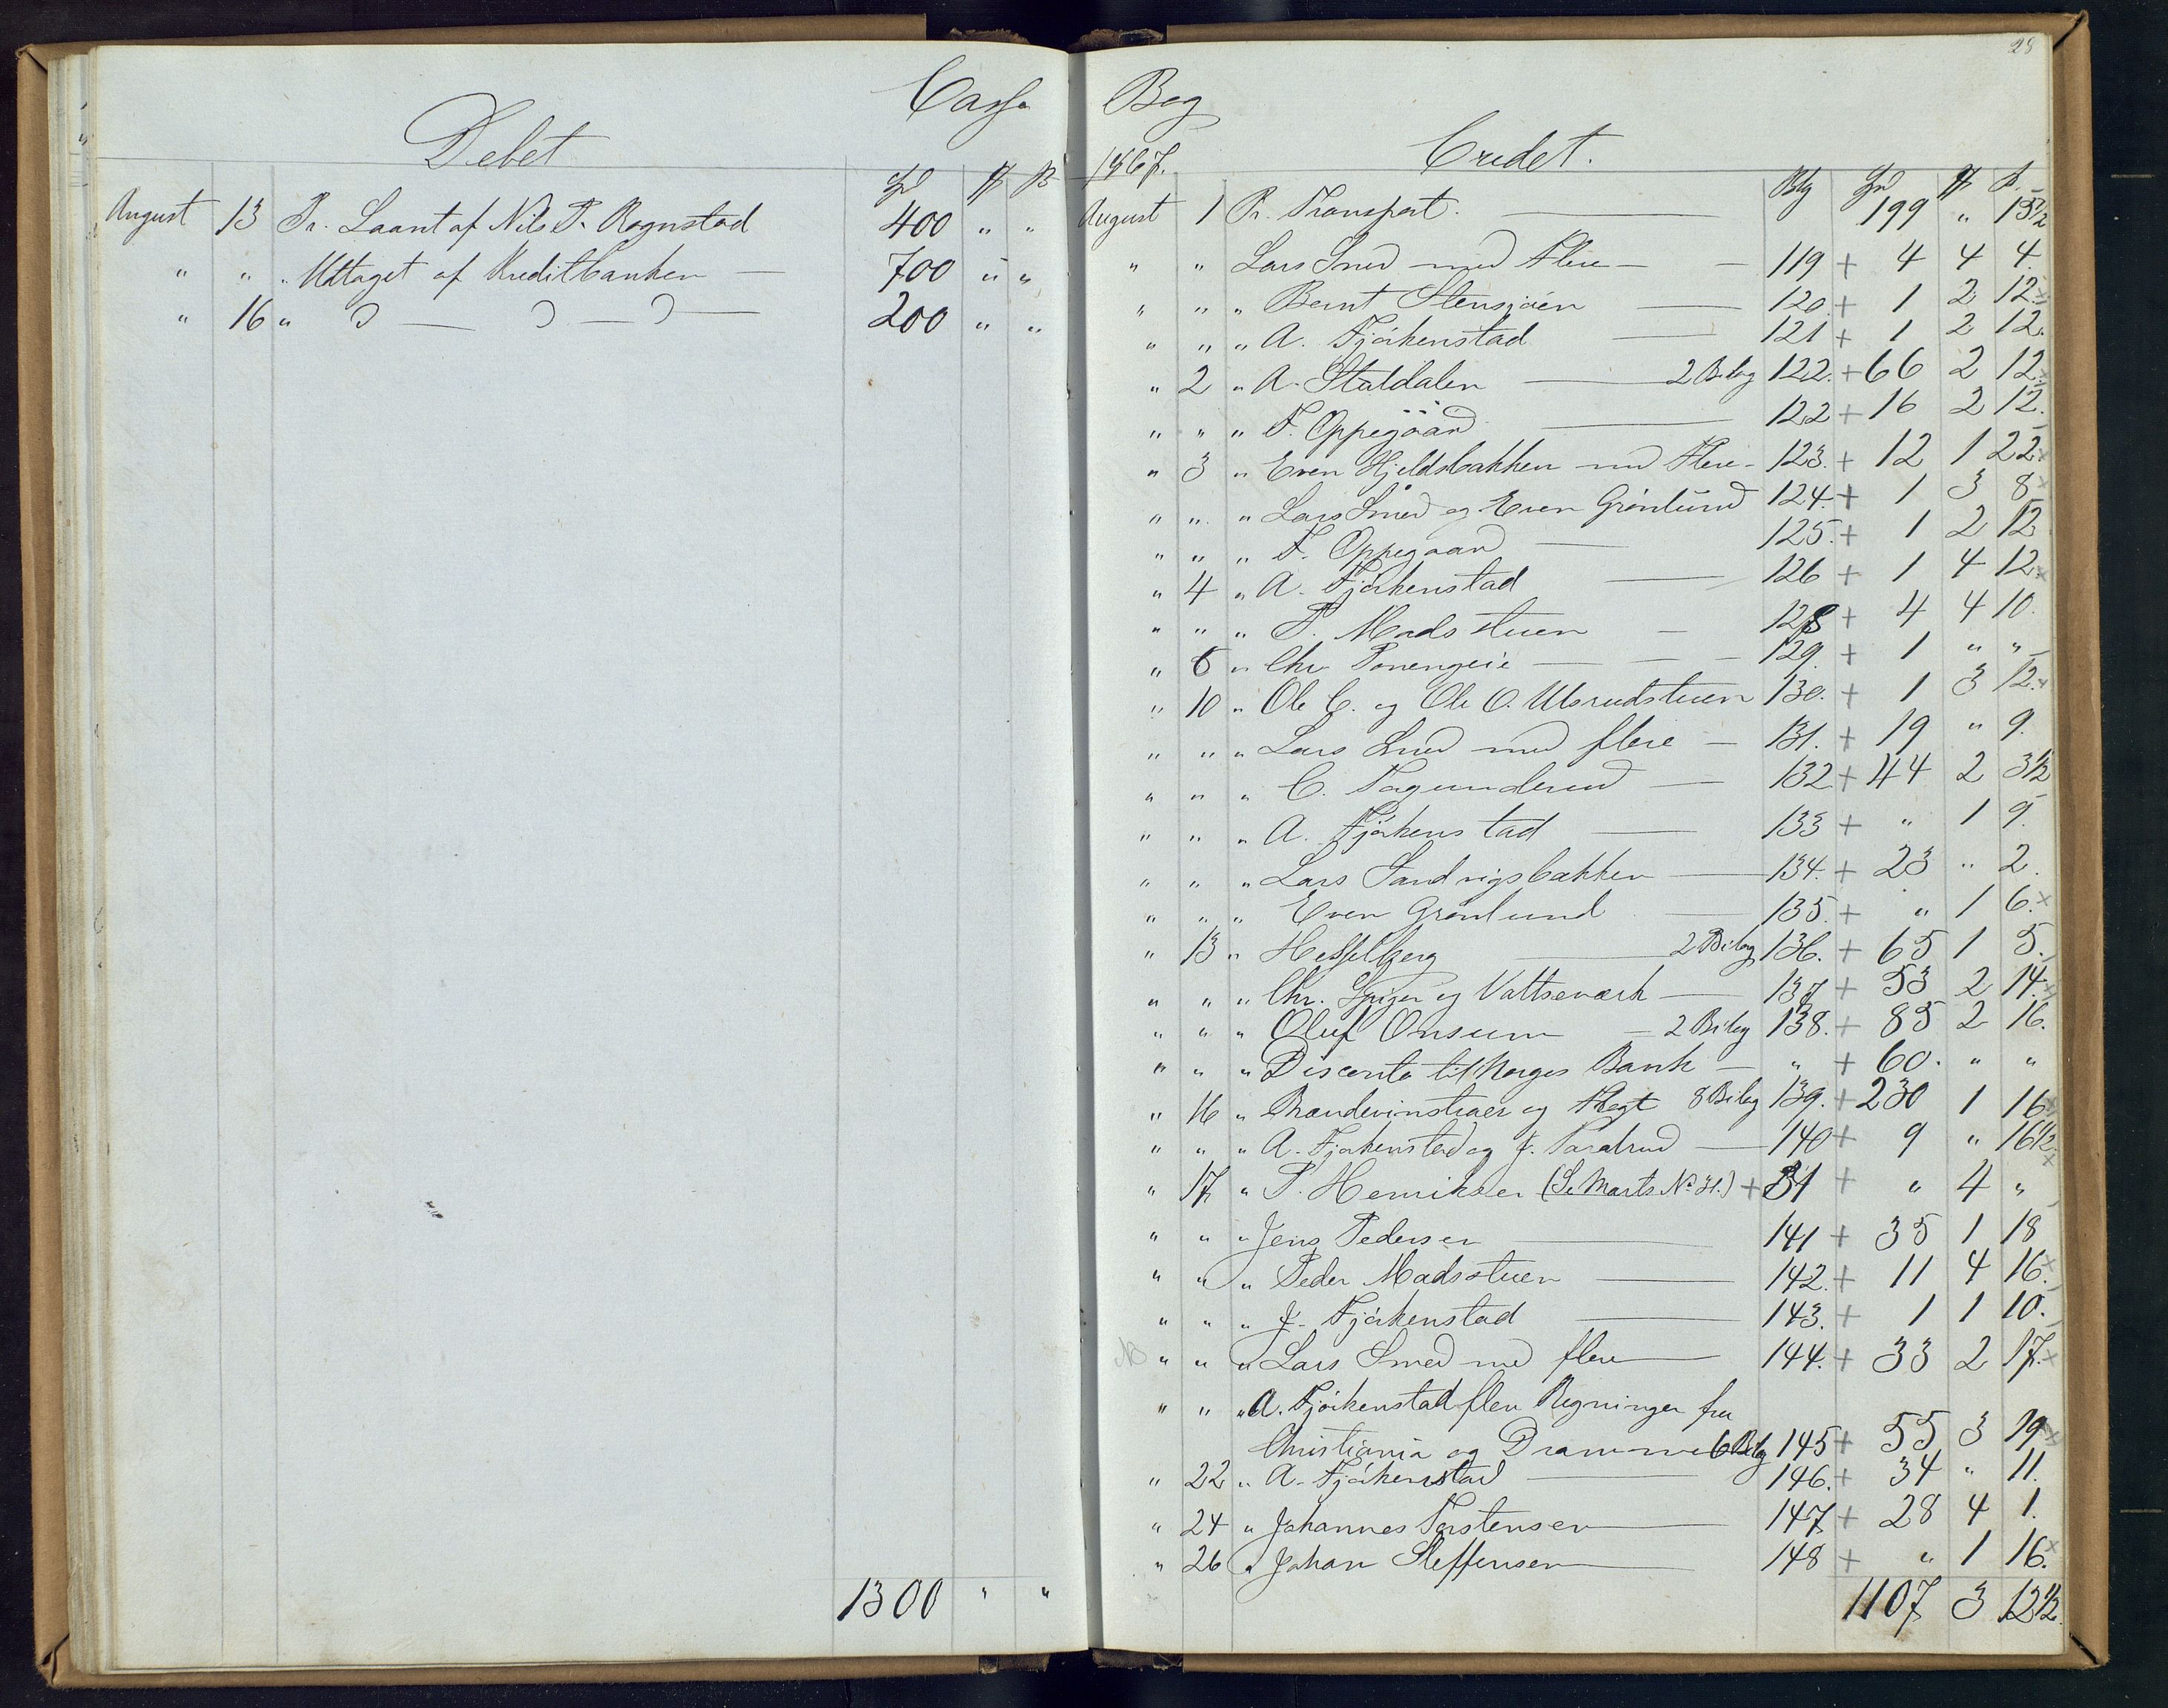 28
Cassa Bog
Debet
Spd
August 13 Pr. Laant af Nils P. Rognstad 400 " "
" " " Udtaget af Kreditbanken — 700 " "
" 16 " D — D — D — 200 " "
1300 " "
1867. Credet.
Blg Spd
August 1 Pr. Transport. — 199 " 15 1/2
" " Lars Smed med Flere — 119 + 4 4 4.
" " " Bernt Stensjøen — 120 + 1 2 12.
" " " A. Fjørkenstad — 121 + 1 2 12.
" 2 " A. Staldalen — 2 Bilag 122. + 66 2 12.
" " " F. Oppegaard — 122 + 16 2 12.
" 3 " Even Hjeldsbakken med Flere - 123. + 12 1 22
" " " Lars Smed og Even Grønlund 124. + 1 3 8
" " " F. Oppegaard — 125. + 1 2 12
" 4 " A. Fjørkenstad — 126 + 1 4 12.
" " " P. Madsstuen — 128 + 4 4 10.
" 6 " Chr. — 129. + 1 " "
" 10 " Ole C. og Ole O. Ulsrudstuen 130. + 1 3 12.
" " " Lars Smed med flere — 131. + 19 " 9.
" " " C. — 132 + 44 2 3 1/2
" " " A. Fjørkenstad — 133 + " 1 9.
" " " Lars Sandvigsbakken — 134. + 23 " 2.
" " " Even Grønlund — 135. + " 1 6.
" 13 " Hesselberg — 2 Bilag 136. + 65 1 5.
" " " Chr. og — 137 + 53 2 14.
" " " Oluf Onsum — 2 Bilag 138. + 85 2 16.
" " " Disconto til Norges Bank — " + 60. " "
" 16 " og 8 Bilag 139. + 230 1 16
" " " A. Fjørkenstad og J. — 140 + 9 " 16 1/2
" 17 " P. Henriksen (Se Marts No 31.) + 31 + " 4 "
" " " Jens Pedersen — 141 + 35 1 18
" " " Peder Madsstuen — 142. + 11 4 16.
" " " J. Fjørkenstad — 143. + 1 1 10.
NB " " " Lars Smed med flere — 144. + 33 2 17.
" " " A. Fjørkenstad flere Regninger fra
Christiania og Drammen 6 Bilag 145 + 55 3 19
" 22 " A. Fjørkenstad — 146. + 34 " 11.
" 24 " Johannes Torstensen — 147 + 28 4 1.
" 26 " Johan Steffensen — 148 + " 1 16.
1107 3 12 1/2.